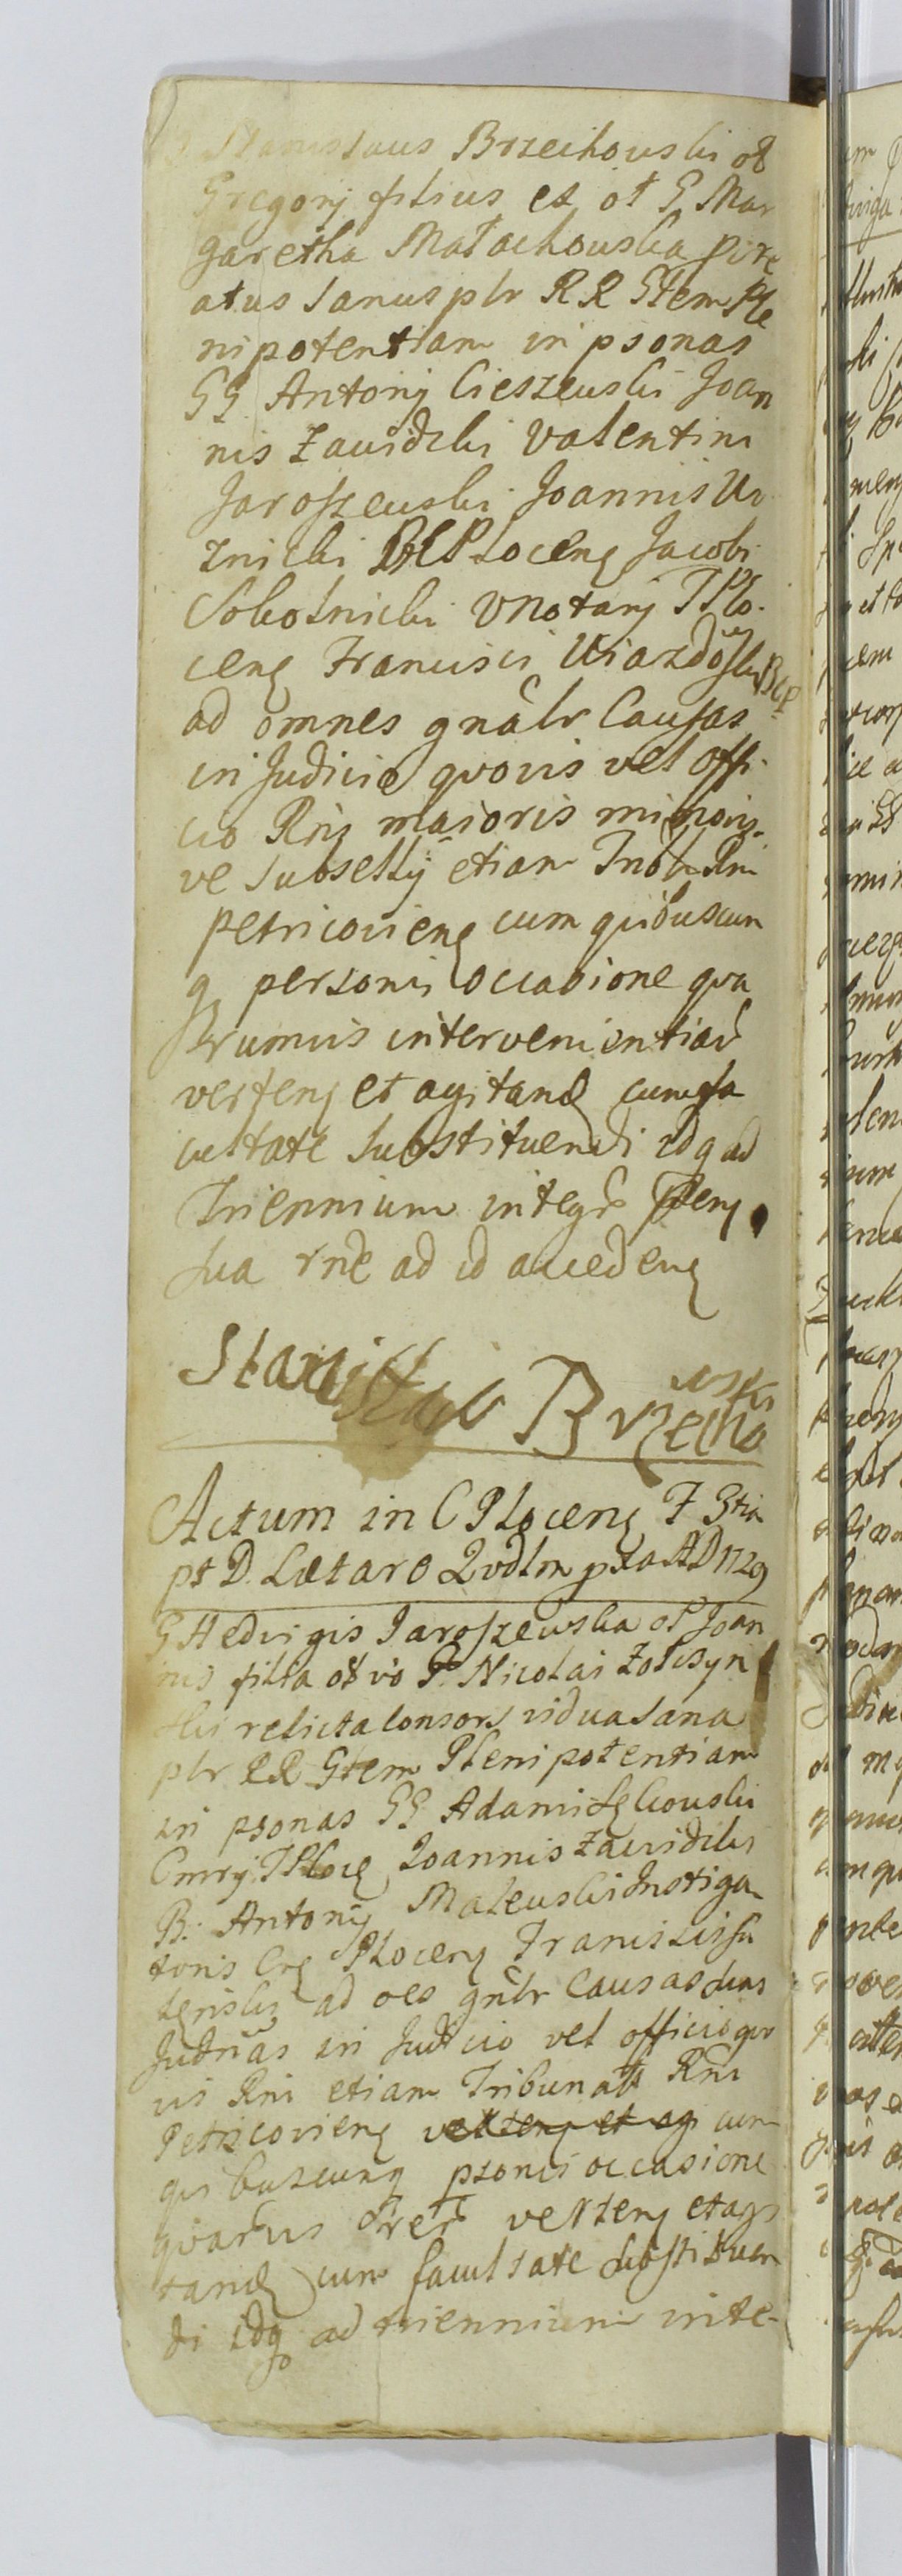 G Stanislaus Brzechowski ol
Gregorij filius ex ol G Mar
garetha Małachowska pire
atus sanus plr RR Gtem Ple
nipotentiam in psonas
GG Antonij Cieszewski Joan
nis Zawidzki Valentini
Jaroszewski Joannis Uz
znicki BCPlocens Jacobi
Sobolnicki VNotarij TPlo.
cens Francisci Uiazdowski BCP
ad omnes gnalr Causas
in Judicio quovis vel offi
cio Rni maioris minoris
ve subsellij etiam Tribli Rni
Petricoviens cum quibuscun
q personis occasione qua
rumvis intervenientiar
vertens et agitand cum fa
cultate substituendi idq ad
Triennium integr
sua rne ad id accedens
Stanisław Brzechowski
Actum in C Plocens F 3tia
pt D. Lætare Qvdlm pxa AD 1729
G Hedvigis Jaroszewska ol Joan
nis filia ol vo G. Nicolai Zolczyn
ski relicta consors vidua sana
plr RR Gtem Plenipotentiam
in psonas GG Adami
Cmrij. TPloc Joannis Zawidzki
B. Antonij Małewski Instiga
toris Crg Plocens Francisci Su
terski ad oes gnlr Causas suas
Judrias in Judicio vel officio qvo
vis Rni etiam Tribunals Rni
Petricoviens vertens et ag cum
quibuscunq psonis occasione
quarvis rer vertens et agi
tand cum facultate substituen
di idq ad triennium inte-